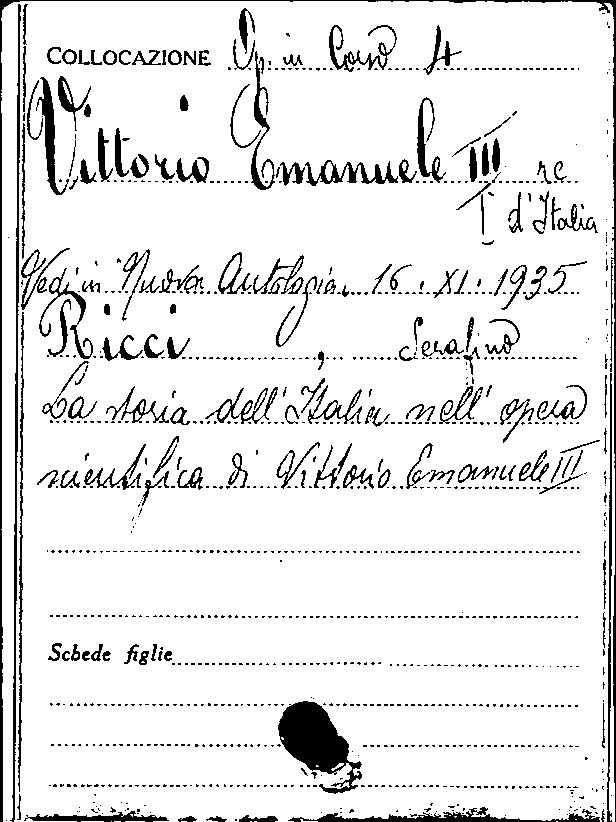 COLLOCAZIONE Op. in Corso 4
Vittorio Emanuele III re
I d'Italia
Vedi in Nuova Antologia. 16. XI. 1935
Ricci, Serafino
La storia dell'Italia nell'opera
scientifica di Vittorio Emanuele III
Schede figlie